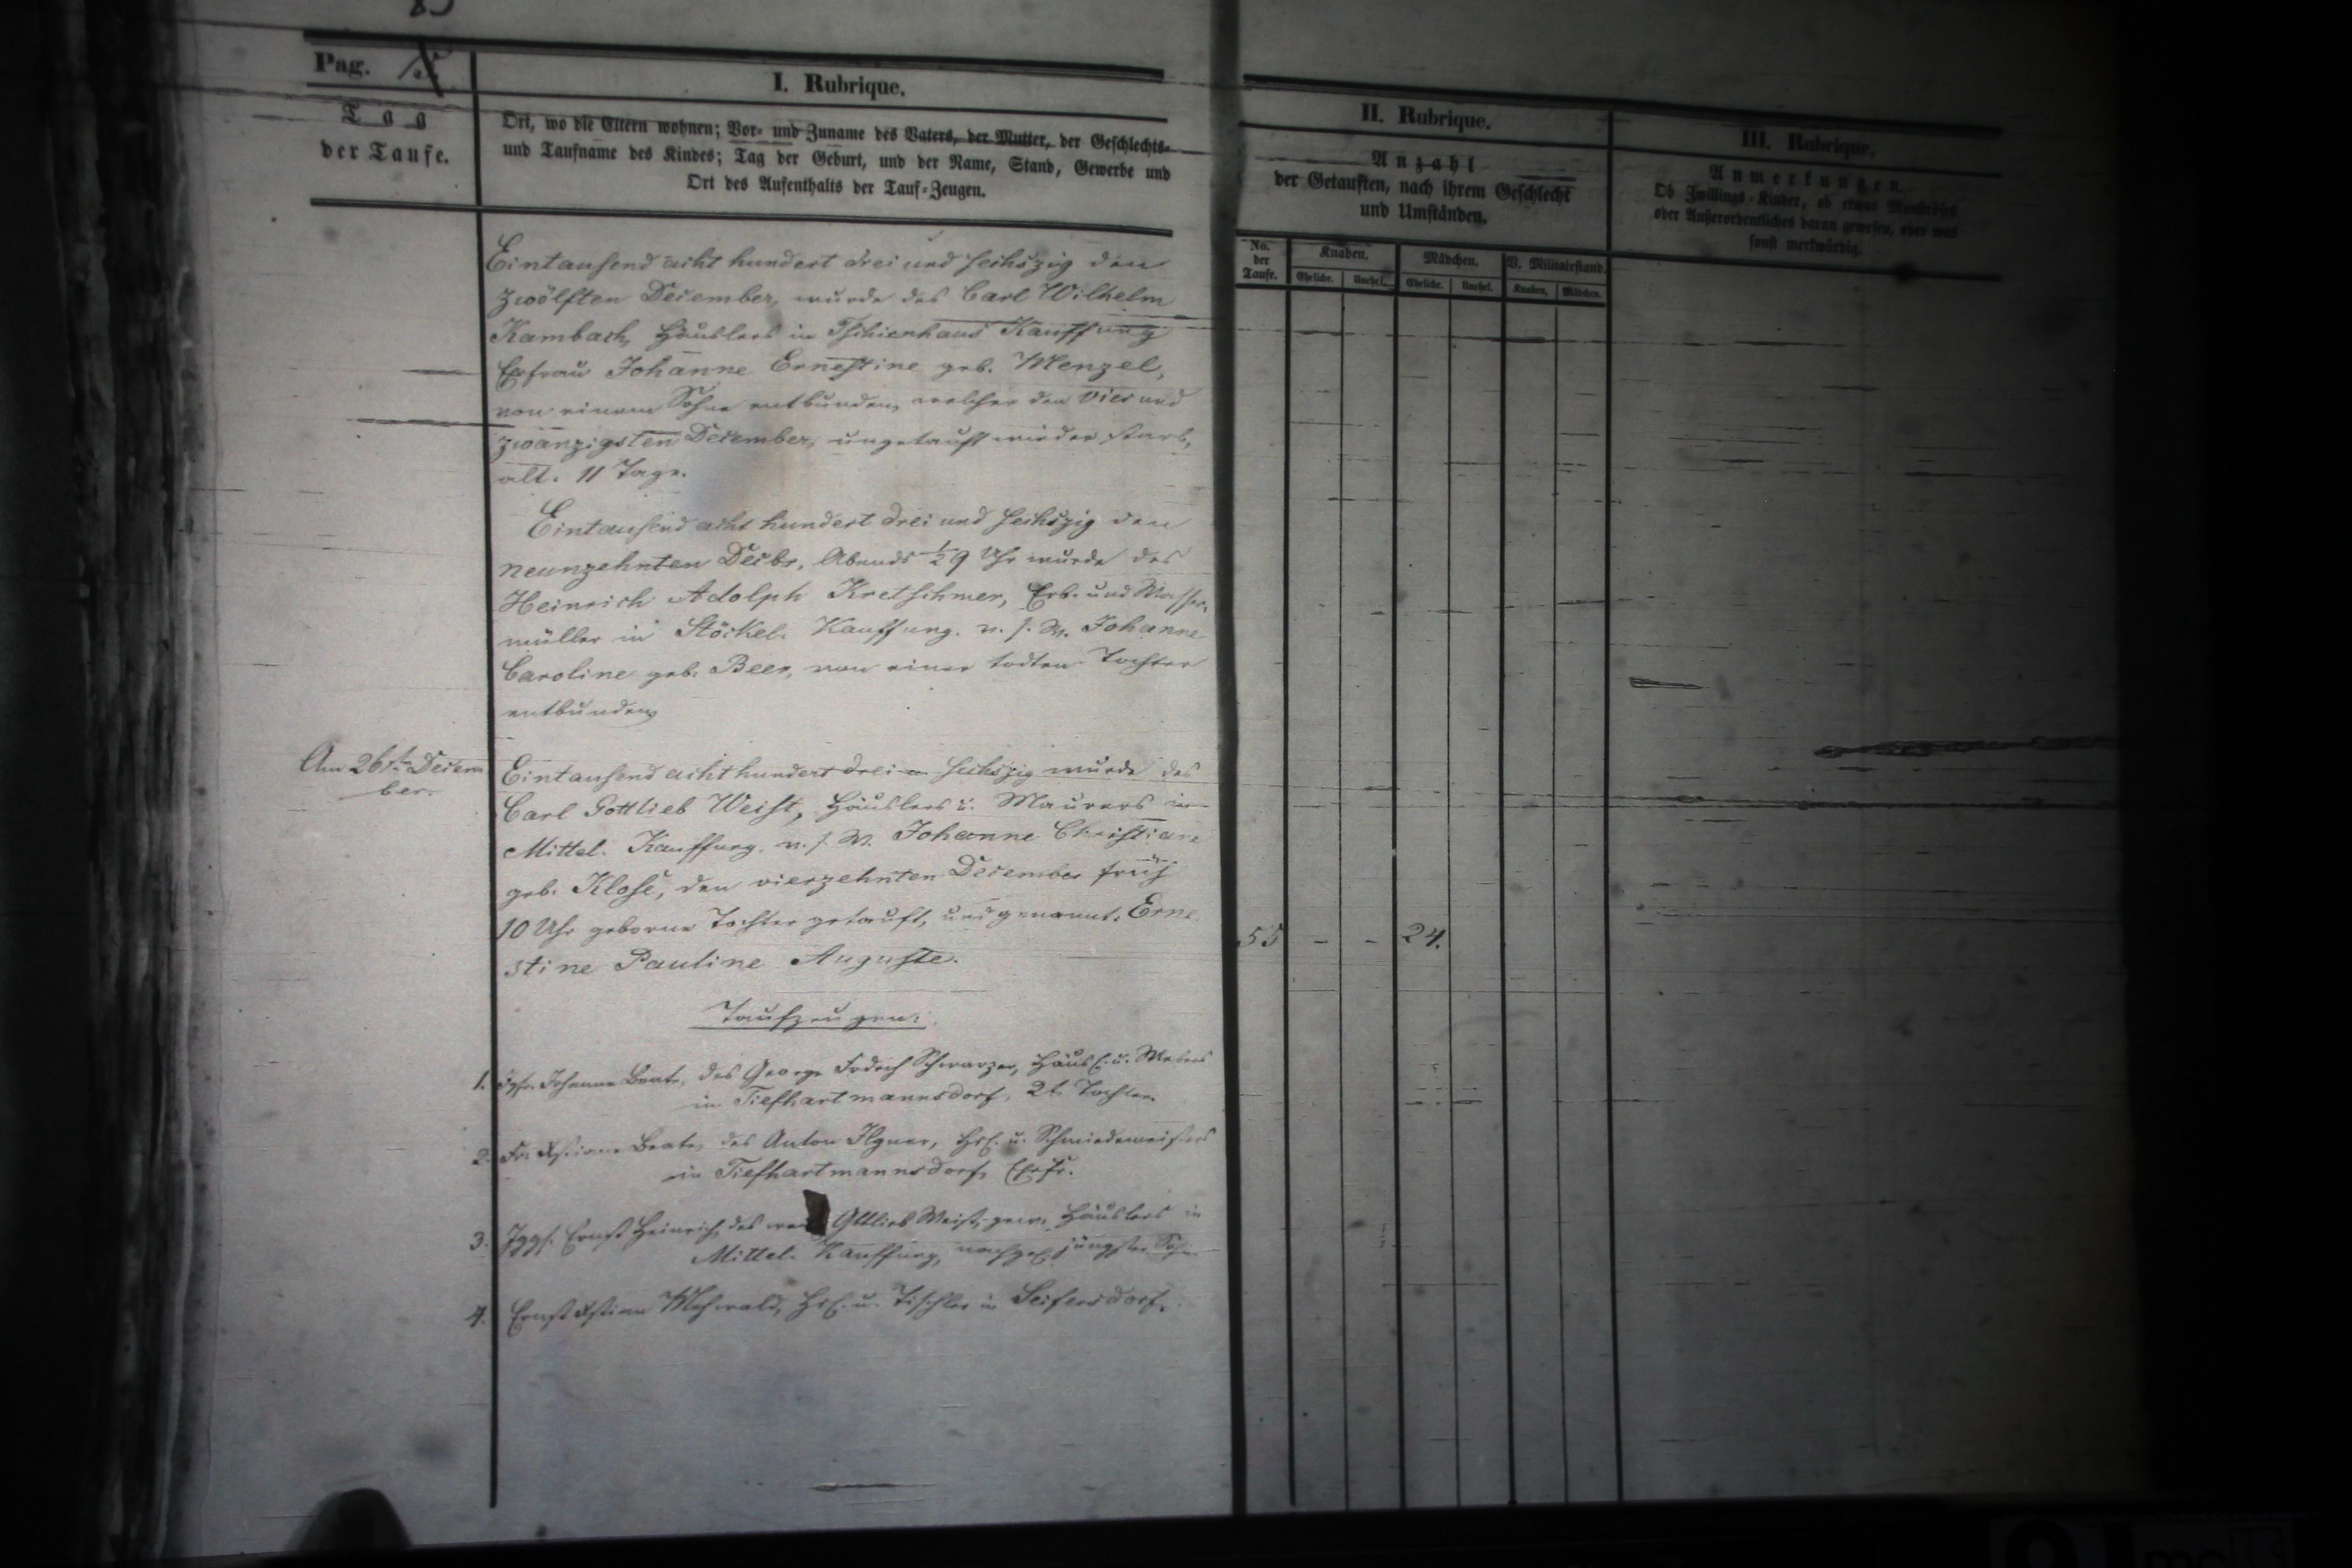 Pag.
I. Rubrique.
Tag
der Taufe.
Ort, wo die Eltern wohnen; Vor- und Zuname des Vaters, der Mutter, der Geschlechts-
und Taufname des Kindes; Tag der Geburt, und der Name, Stand, Gewerbe und
Ort des Aufenthalts der Tauf-Zeugen.
II. Rubrique.
Anzahl
der Getauften, nach ihrem Geschlecht
und Umständen.
No. der Taufe.
Knaben.
Mädchen.
V. Militairstand.
Eheliche. Unehel. Eheliche. Unehel. Knaben. Mädchen.
III. Rubrique.
Anmerkungen.
Ob Zwillings-Kinder, ob etwas Monströses
oder Außerordentliches daran gewesen, oder was
sonst merkwürdig.
Eintausend acht hundert drei und sechszig den
zwölften December, wurde des Carl Wilhelm
Kambach, Häuslers in Tschirnhaus Kauffung
Ehefrau Johanne Ernestine geb. Menzel,
von einem Sohne entbunden, welcher den vier und
zwanzigsten December, ungetauft wieder starb,
alt. 11 Tage.
Eintausend acht hundert drei und sechszig den
neunzehnten Decbr, Abends ½9 Uhr wurde des
Heinrich Adolph Kretschmer, Erb- und Wasser-
müller in Stöckel. Kauffung. u. s. W. Johanne
Caroline geb. Beer, von einer todten Tochter
entbunden
Am 26ten Decem
ber.
Eintausend acht hundert drei u sechszig wurde des
Carl Gottlieb Weist, Häuslers u. Maurers in
Mittel. Kauffung, u. s. W. Johanne Christiane
geb. Klose, den vierzehnten December früh
10 Uhr geborne Tochter getauft, und genannt: Erne
stine Pauline Auguste.
55 - - 24.
Taufzeugen:
1. Jgfr. Johanne Beate, des George Frdrch Schwarzer, Häusl. u. Webers
in Tiefhartmannsdorf, 2t. Tochter.
2. Fr. Beate, des Anton Ilgner, Hsl. u. Schmiedemeisters
in Tiefhartmannsdorf, Ehefr.
3. Jggs. Ernst Heinrich, des Gttlieb Weist, gew. Häuslers in
Mittel. Kauffung, nachgel. jüngster Sohn
4. Ernst Mehwald, Hsl. u. Tischler in Seifersdorf.